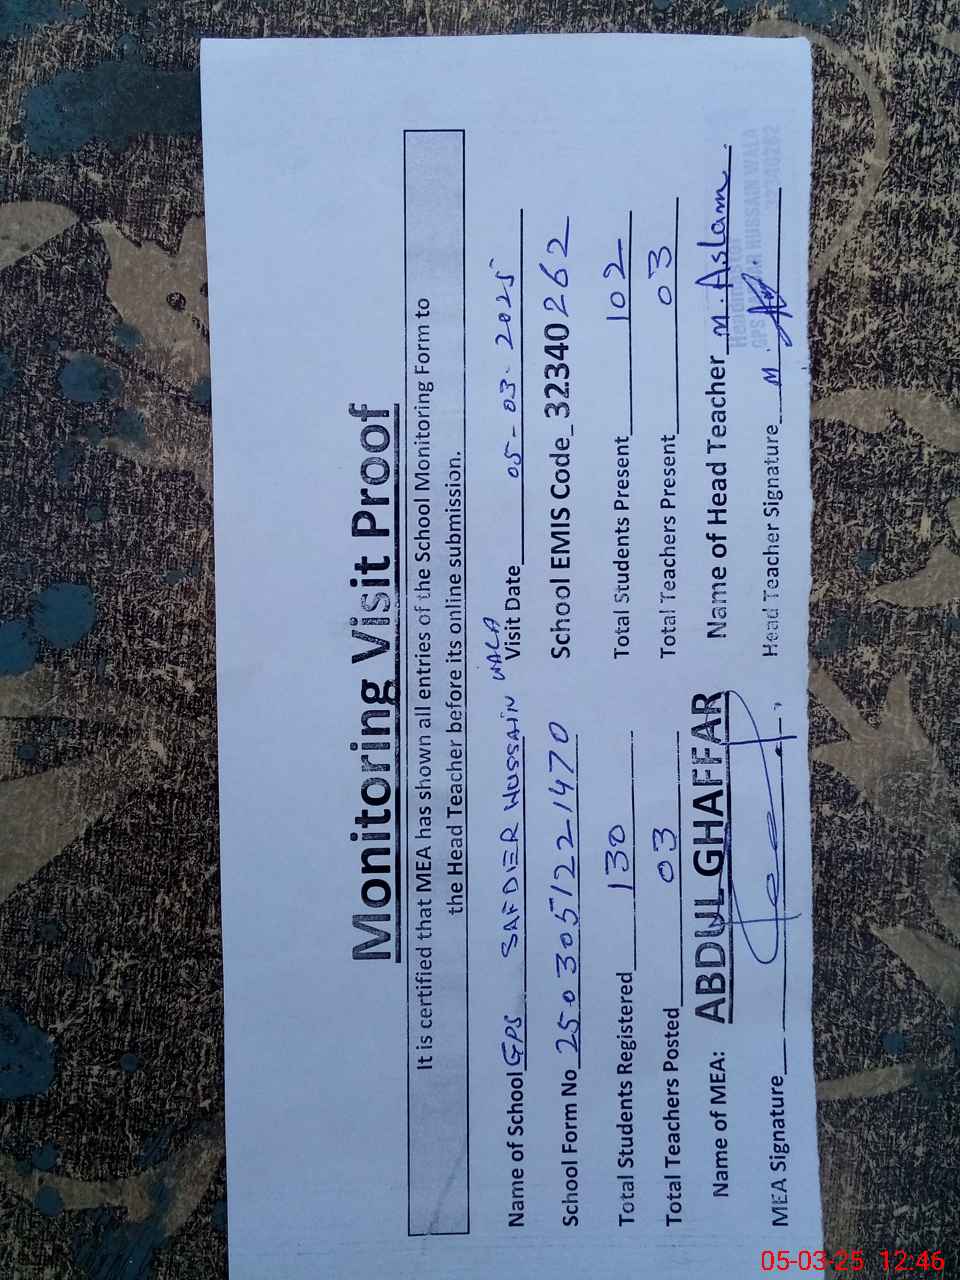 Monitoring Visit Proof
It is certified that MEA has shown all entries of the School Monitoring Form to
the Head Teacher before its online submission.
Name of School GPS SAFDER HUSSAIN WALA Visit Date 05-03-2025
School Form No 2503051221470 School EMIS Code_32340262
Total Students Registered 130 Total Students Present 102
Total Teachers Posted 03 Total Teachers Present 03
Name of MEA: ABDUL GHAFFAR Name of Head Teacher M. Aslam
MEA Signature Head Teacher Signature M.
HUSSAIN WALA
32340262
05-03-25 12:46